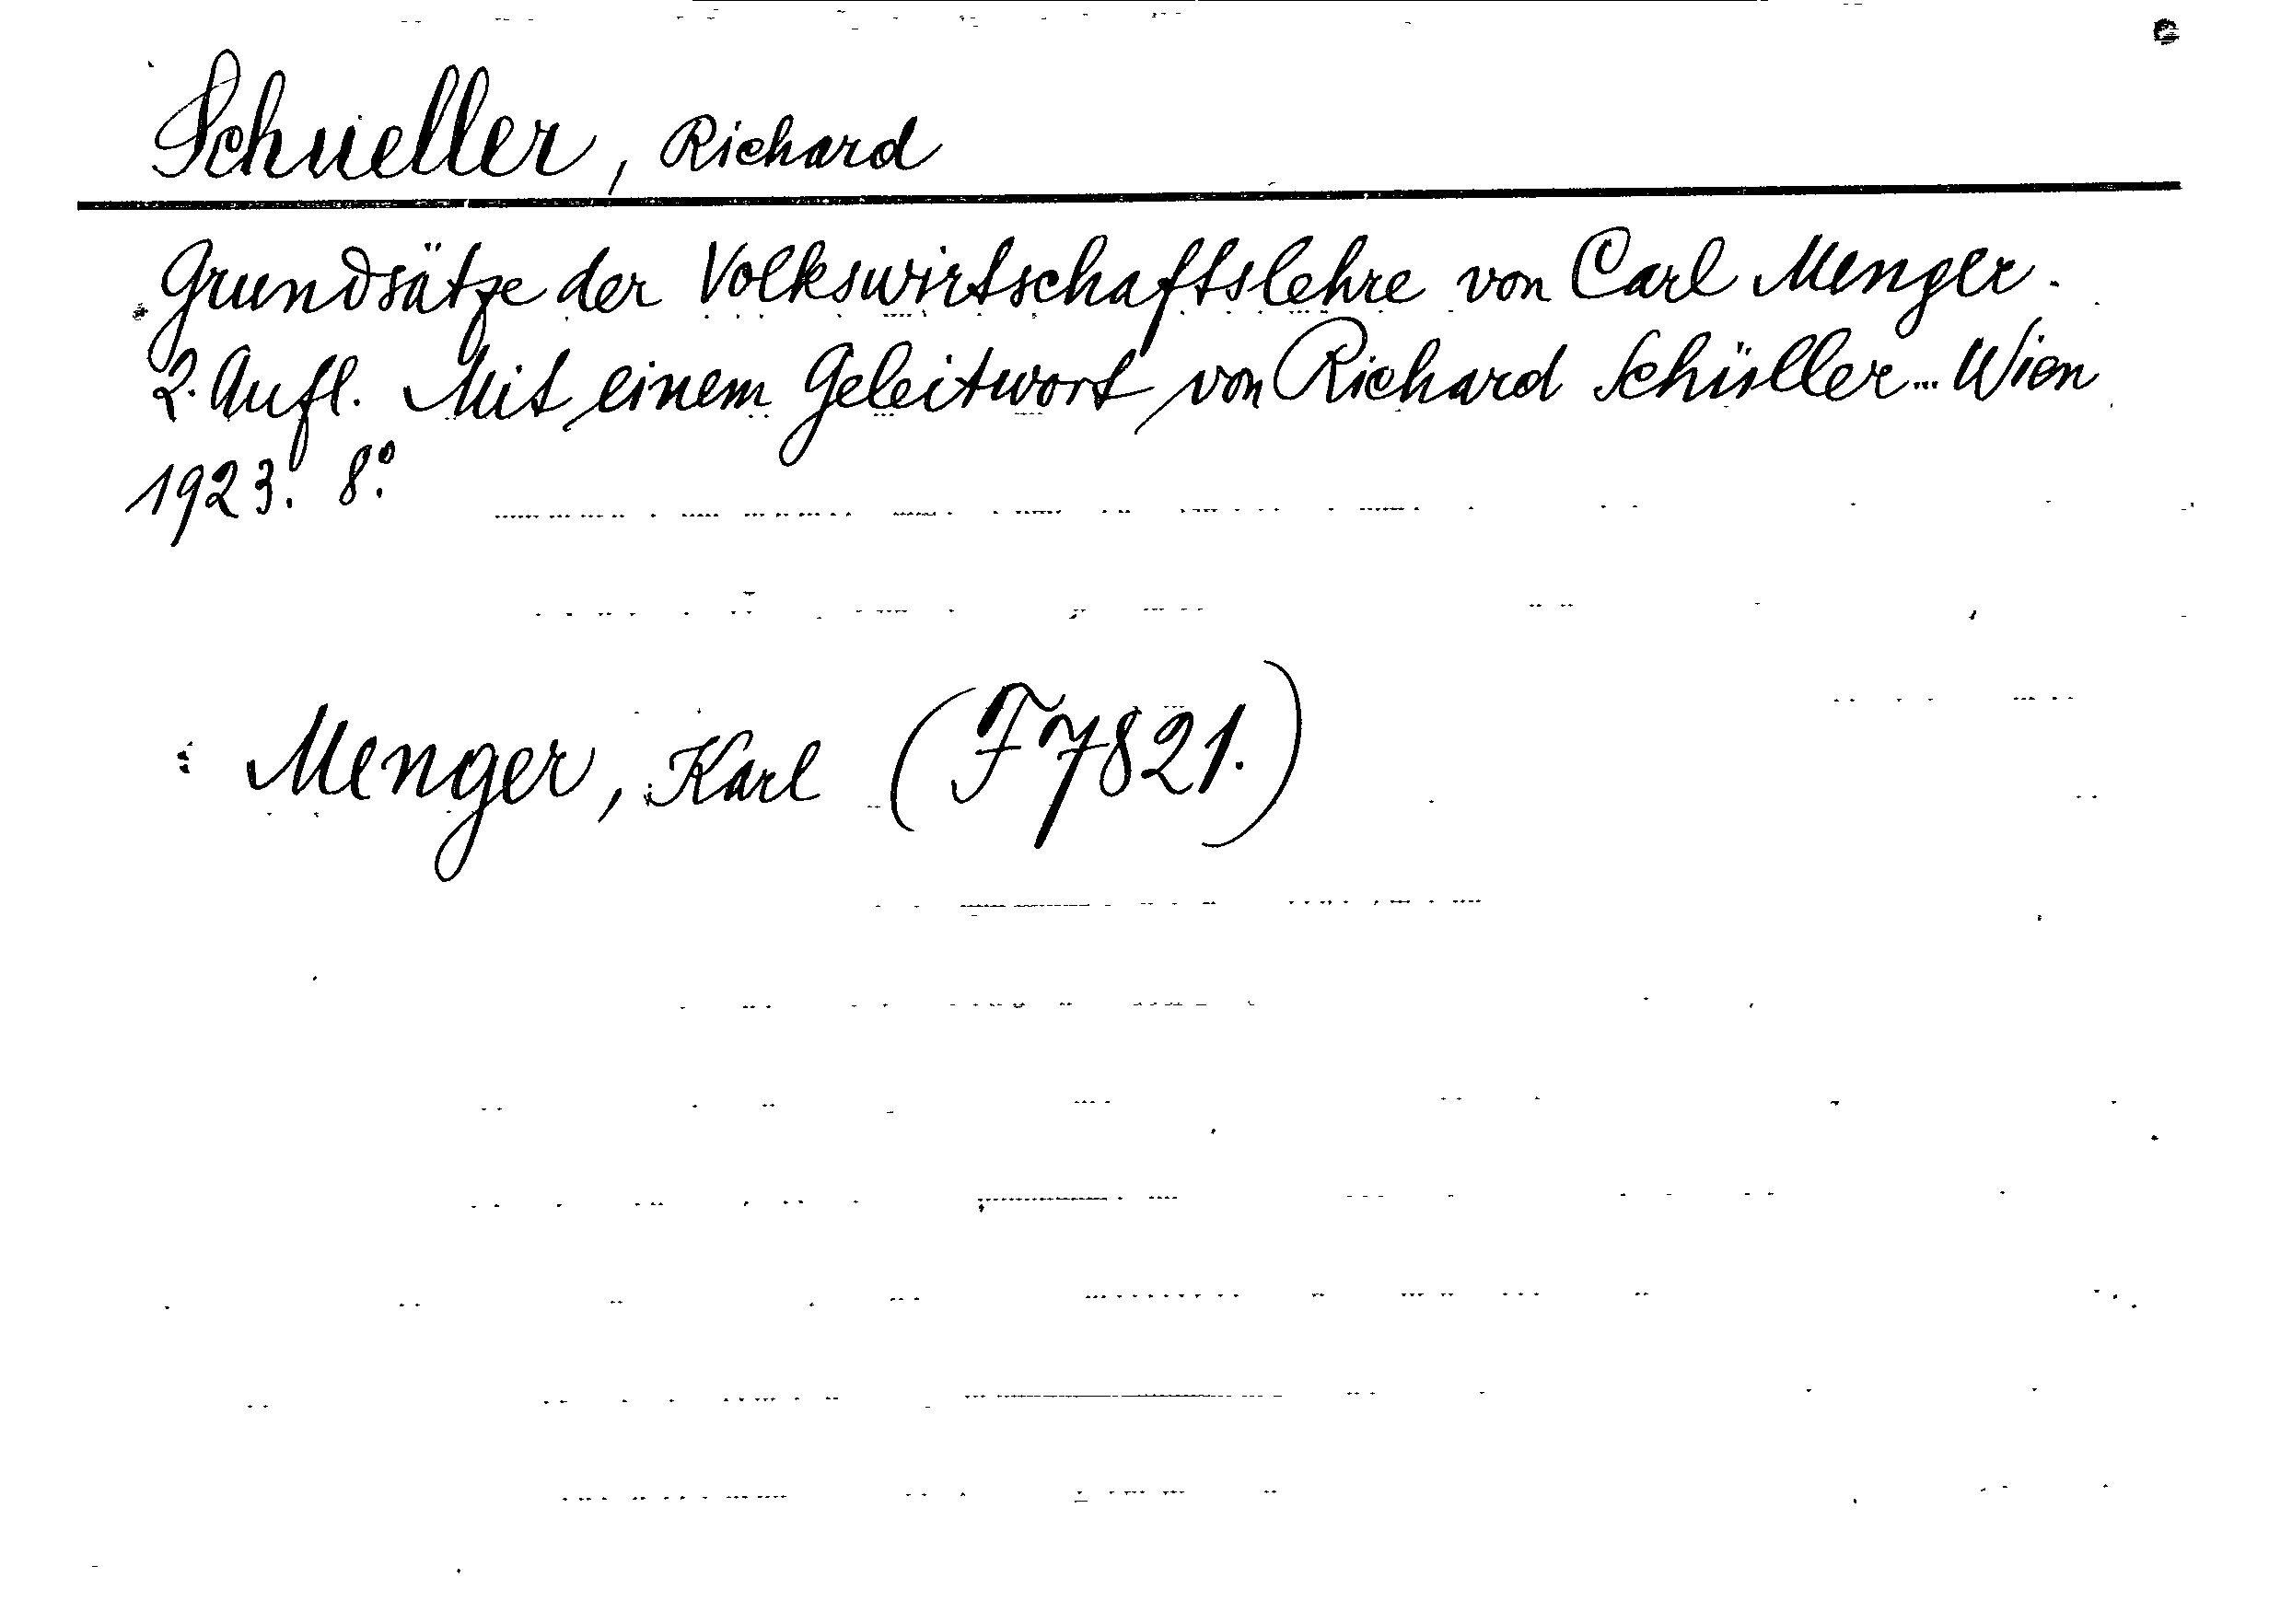 Schueller, Richard
Grundsätze der Volkswirtschaftslehre von Carl Menger.
2. Aufl. Mit einem Geleitwort von Richard Schüller... Wien
1923. 8°.
Menger, Karl (F7821.)